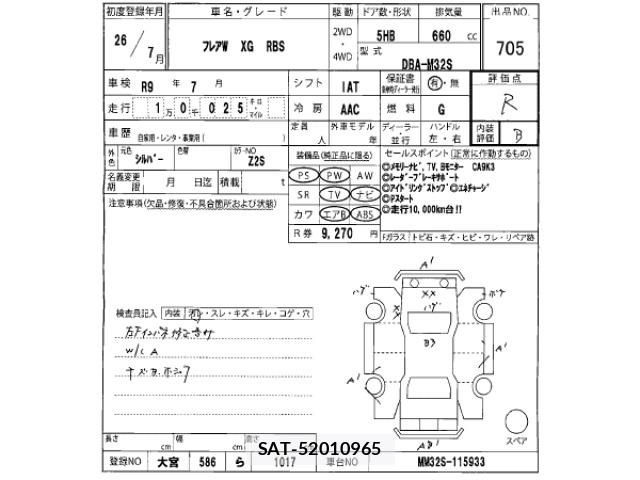 初度登録年月 車名・グレード 駆動 ドア数・形状 排気量 出品NO.
26 / 7月 フレアW XG RBS 2WD ・ 4WD 5HB 660 cc 705
型式 DBA-M32S
車検 R9 年 7 月 シフト IAT 保証書 有・無 評価点
走行 1万0千025 キロ・マイル 冷房 AAC 燃料 G R
車歴 自家用・レンタ・事業用( ) 定員 人 外車モデル 年 ディーラー・並行 ハンドル 左・右 内装評価 B
外色 元色 シルバー 色替 カラーNO Z2S 装備品(純正品に限る) セールスポイント(正常に作動するもの)
名義変更期限 月 日迄 積載 t PS PW AW
◎メモリーナビ、TV、Bモニター CA9K3
◎レーダーブレーキサポート
SR TV ナビ ◎アイドリングストップ◎エネチャージ
◎Pスタート
注意事項(欠品・修復・不具合箇所および状態) カワ エアB ABS ◎走行10,000km台!!
R券 9,270 円 Fガラス トビ石・キズ・ヒビ・ワレ・リペア跡
A'
ハゲ XX ボケ
検査員記入 内装 ・スレ・キズ・キレ・コゲ・穴
B3
W/C A
A' A'
スペア
長さ cm 幅 cm 高さ
SAT-52010965
登録NO 大宮 586 ら 1017 車台NO MM32S-115933